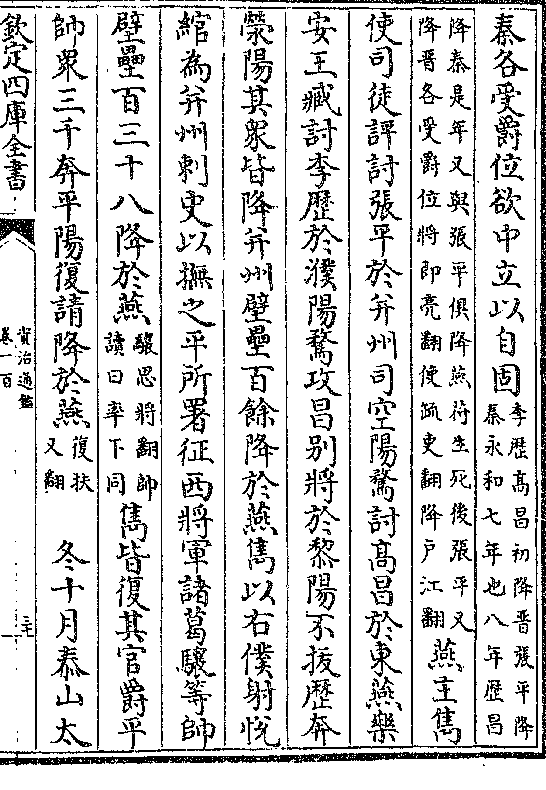 秦各受爵位欲中立以自固李歴髙昌初降晉張平降秦永和七年也八年歴昌
降秦是年又與張平俱降燕苻生死後張平又降晉各受爵位將即亮翻使疏吏翻降户江翻燕主儁
使司徒評討張平於并州司空陽騖討髙昌於東燕樂
安王臧討李歴於濮陽騖攻昌别將於黎陽不拔歴奔
滎陽其衆皆降并州壁壘百餘降於燕儁以右僕射悅
綰為并州刺史以撫之平所署征西將軍諸葛驤等帥
壁壘百三十八降於燕驤思將翻帥讀曰率下同儁皆復其官爵平
帥衆三千奔平陽復請降於燕復扶又翻冬十月泰山太
欽定四庫全書
資治通鑑
卷一百